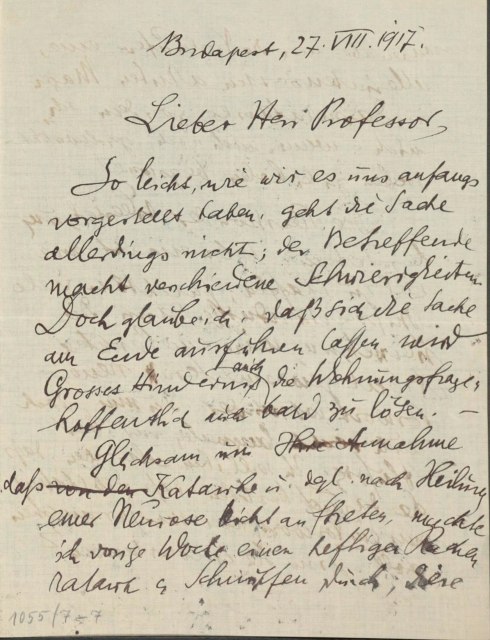 Budapest, 27. VIII. 1917.
Lieber Herr Professor,
So leicht, wie wir es uns anfangs
vorgestellt haben, geht die Sache
allerdings nicht; der Betreffende
macht verschiedene Schwierigkeiten.
Doch glaube ich, daß sich die Sache
am Ende ausführen lassen wird
Grosses Hindernis auch die Wohnungsfrage,
hoffentlich bald zu lösen. —
Gleichsam um Ihre Annahme
daß von den Katarrhe u dgl. nach Heilung
einer Neurose leicht auftreten, machte
ich vorige Woche einen heftigen Rachen
katarrh u Schnupfen durch; diese
1055/7-7